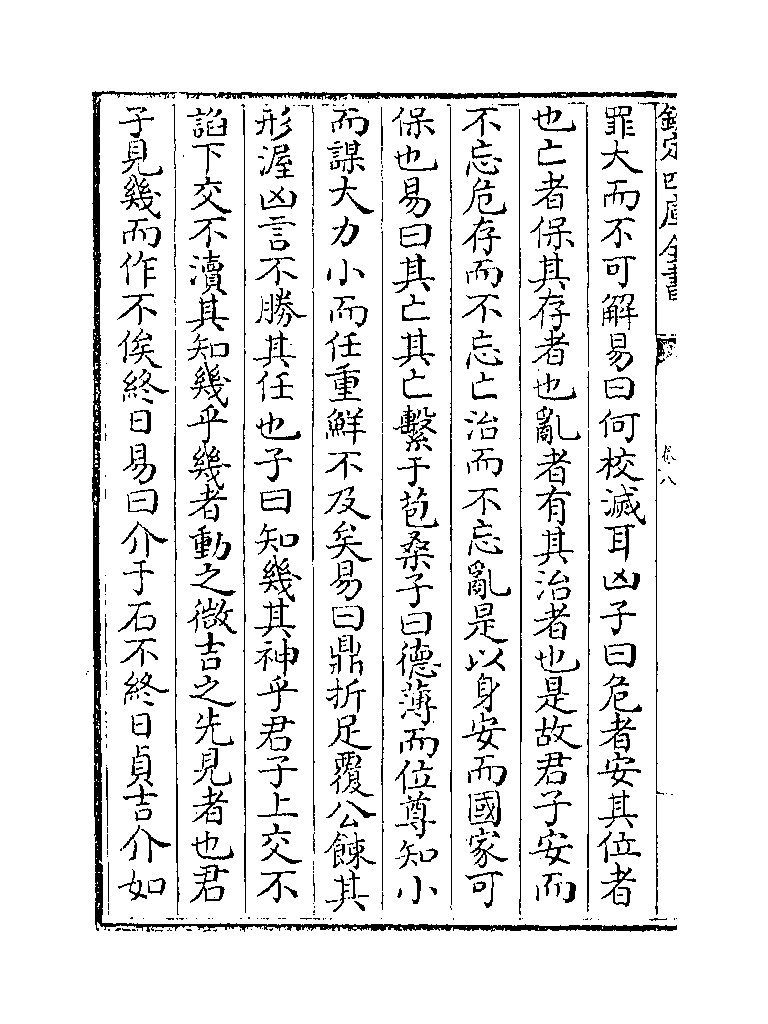 欽定四庫全書
卷八
罪大而不可解易曰何校滅耳凶子曰危者安其位者
也亡者保其存者也亂者有其治者也是故君子安而
不忘危存而不忘亡治而不忘亂是以身安而國家可
保也易曰其亡其亡繫于苞桑子曰德薄而位尊知小
而謀大力小而任重鮮不及矣易曰鼎折足覆公餗其
形渥凶言不勝其任也子曰知幾其神乎君子上交不
諂下交不瀆其知幾乎幾者動之微吉之先見者也君
子見幾而作不俟終日易曰介于石不終日貞吉介如